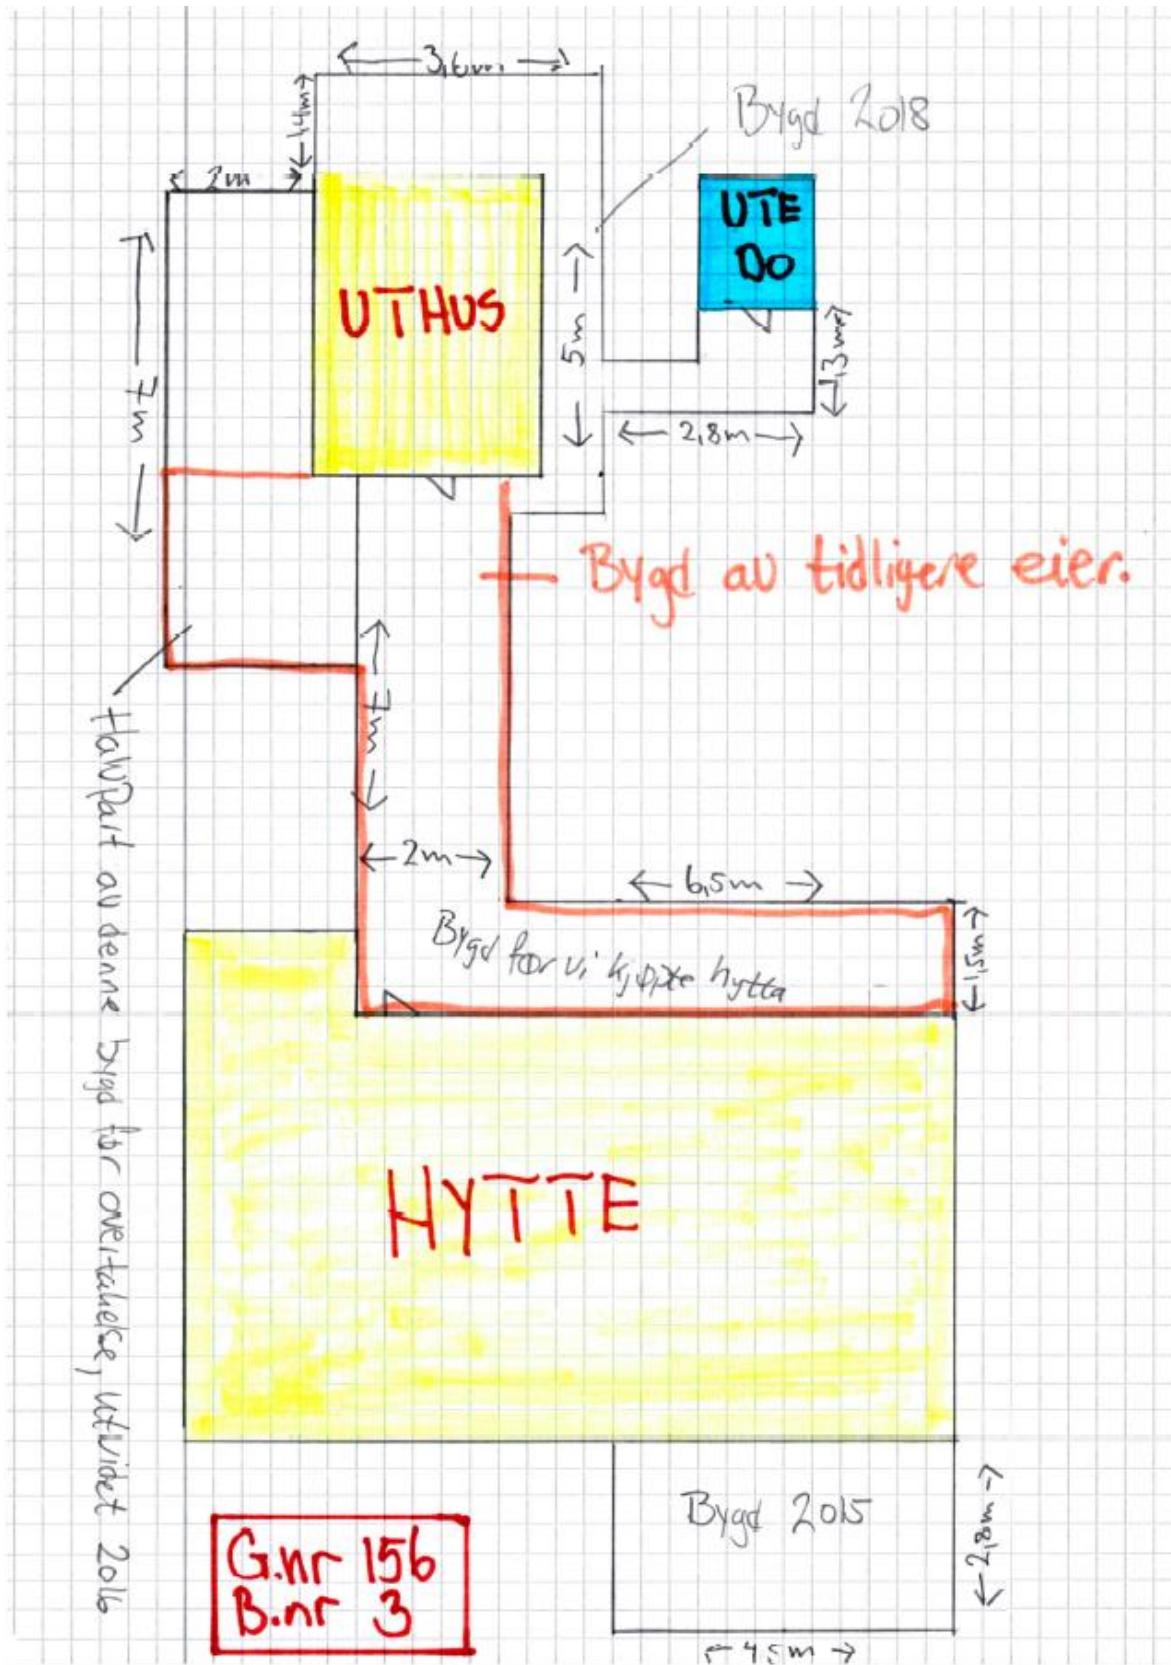 3,6m
1,4m
Bygd 2018
2m
UTE
DO
UTHUS
5m
1,3m
7m
2,8m
Bygd av tidligere eier.
7m
2m
6,5m
Bygd før vi kjøpte hytta
1,5m
Halvpart av denne bygd før overtakelse, utvidet 2016
HYTTE
Bygd 2015
2,8m
G.nr 156
B.nr 3
4,5m